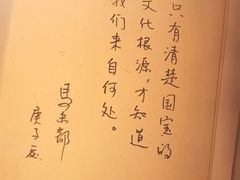 只有清楚国宝的
文化根源，才知道
我们来自何处。
马未都
庚子夏